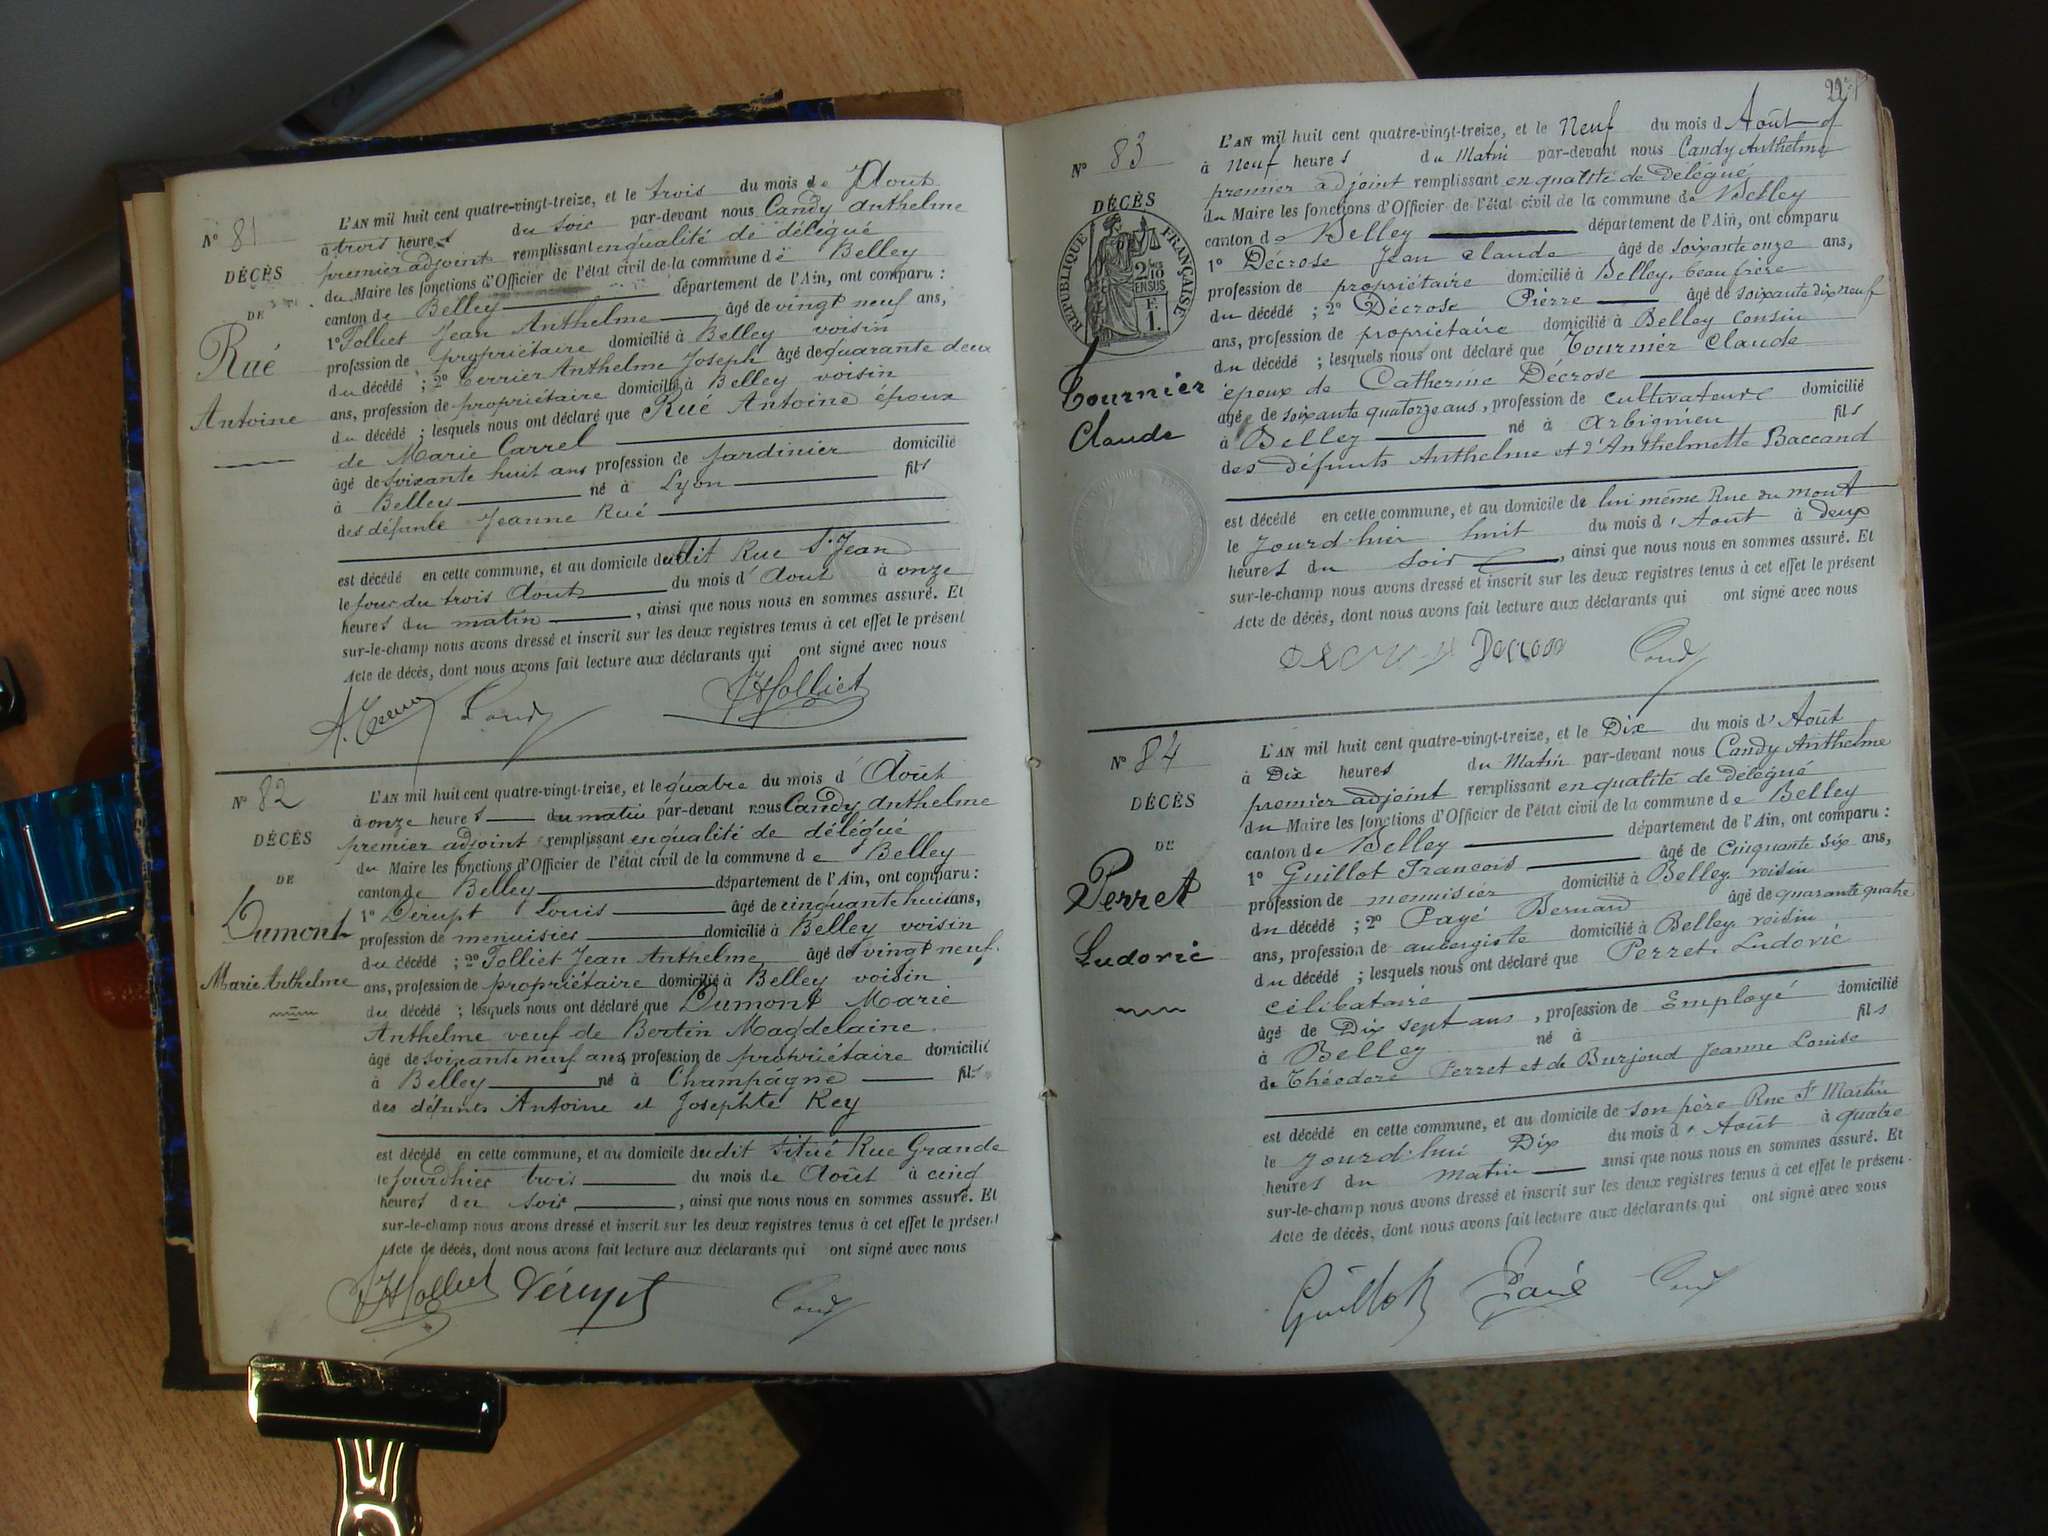 N° 81
DÉCÈS
DE
Rué
Antoine
L'AN mil huit cent quatre-vingt-treize, et le trois du mois de Aout
à trois heures du soir par-devant nous Candy Anthelme
premier adjoint remplissant en qualité de délégué
du Maire les fonctions d'Officier de l'état civil de la commune de Belley
canton de Belley département de l'Ain, ont comparu :
1° Tolliet Jean Anthelme âgé de vingt neuf ans,
profession de propriétaire domicilié à Belley voisin
du décédé ; 2° Terrier Anthelme Joseph âgé de quarante deux
ans, profession de propriétaire domicilié à Belley voisin
du décédé ; lesquels nous ont déclaré que Rué Antoine époux
de Marie Carrel
âgé de soixante huit ans profession de Jardinier domicilié
à Belley né à Lyon fils
des défunte Jeanne Rué
est décédé en cette commune, et au domicile dudit Rue St Jean
le jour du trois Aout du mois d'Aout à onze
heures du matin, ainsi que nous nous en sommes assuré. Et
sur-le-champ nous avons dressé et inscrit sur les deux registres tenus à cet effet le présent
Acte de décès, dont nous avons fait lecture aux déclarants qui ont signé avec nous
Candy JATolliet
N° 82
DÉCÈS
DE
Dumont
Marie Anthelme
L'AN mil huit cent quatre-vingt-treize, et le quatre du mois d'Août
à onze heures du matin par-devant nous Candy Anthelme
premier adjoint remplissant en qualité de délégué
du Maire les fonctions d'Officier de l'état civil de la commune de Belley
canton de Belley département de l'Ain, ont comparu :
1° Dérupt Louis âgé de cinquante huit ans,
profession de menuisier domicilié à Belley voisin
du décédé ; 2° Tolliet Jean Anthelme âgé de vingt neuf
ans, profession de propriétaire domicilié à Belley voisin
du décédé ; lesquels nous ont déclaré que Dumont Marie
Anthelme veuf de Bertin Magdelaine
âgé de soixante neuf ans profession de propriétaire domicilié
à Belley né à Champagne fils
des défunts Antoine et Josephte Rey
est décédé en cette commune, et au domicile dudit situé Rue Grande
le jourd'hier trois du mois de Août à cinq
heures du soir, ainsi que nous nous en sommes assuré. Et
sur-le-champ nous avons dressé et inscrit sur les deux registres tenus à cet effet le présent
Acte de décès, dont nous avons fait lecture aux déclarants qui ont signé avec nous
JATolliet Dérupt Candy
N° 83
DÉCÈS
RÉPUBLIQUE FRANÇAISE
2/10
EN SUS
F.
1.
Tournier
Claude
L'AN mil huit cent quatre-vingt-treize, et le Neuf du mois d'Août
à Neuf heures du Matin par-devant nous Candy Anthelme
premier adjoint remplissant en qualité de Délégué
du Maire les fonctions d'Officier de l'état civil de la commune de Belley
canton de Belley département de l'Ain, ont comparu
1° Décrose Jean Claude âgé de soixante onze ans,
profession de propriétaire domicilié à Belley, beau frère
du décédé ; 2° Décrose Pierre âgé de soixante dix neuf
ans, profession de propriétaire domicilié à Belley Cousin
du décédé ; lesquels nous ont déclaré que Tournier Claude
époux de Catherine Décrose
âgé de soixante quatorze ans, profession de cultivateur domicilié
à Belley né à Arbignieu fils
des défunts Anthelme et d'Anthelmette Baccand
est décédé en cette commune, et au domicile de lui même Rue du mont
le Jourd'hier huit du mois d'Aout à deux
heures du soir, ainsi que nous nous en sommes assuré. Et
sur-le-champ nous avons dressé et inscrit sur les deux registres tenus à cet effet le présent
Acte de décès, dont nous avons fait lecture aux déclarants qui ont signé avec nous
Decrose Candy
N° 84
DÉCÈS
DE
Perret
Ludovic
L'AN mil huit cent quatre-vingt-treize, et le Dix du mois d'Août
à Dix heures du Matin par-devant nous Candy Anthelme
premier adjoint remplissant en qualité de délégué
du Maire les fonctions d'Officier de l'état civil de la commune de Belley
canton de Belley département de l'Ain, ont comparu :
1° Guillot Francois âgé de Cinquante six ans,
profession de menuisier domicilié à Belley voisin
du décédé ; 2° Payé Bernard âgé de quarante quatre
ans, profession de aubergiste domicilié à Belley, voisin
du décédé ; lesquels nous ont déclaré que Perret Ludovic
célibataire
âgé de Dix sept ans, profession de Employé domicilié
à Belley né à fils
de Théodore Perret et de Burjoud Jeanne Louise
est décédé en cette commune, et au domicile de son père Rue St Martin
le Jourd'hui Dix du mois d'Août à quatre
heures du matin ainsi que nous nous en sommes assuré. Et
sur-le-champ nous avons dressé et inscrit sur les deux registres tenus à cet effet le présent
Acte de décès, dont nous avons fait lecture aux déclarants qui ont signé avec nous
Guillot Payé Candy